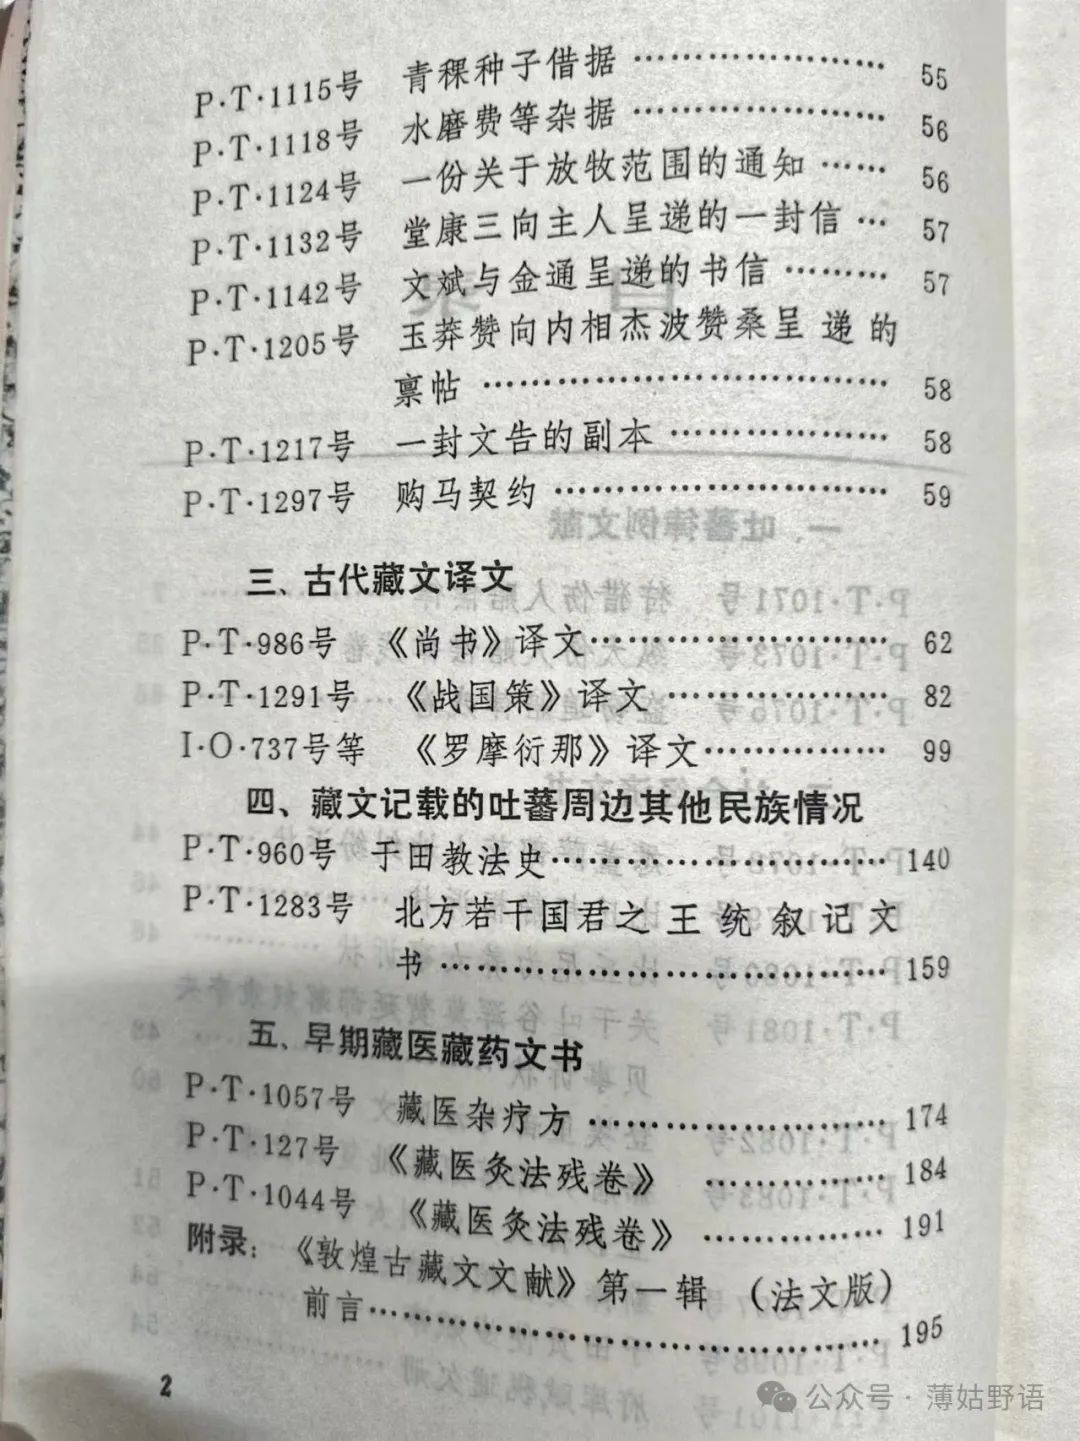 P·T·1115号 青稞种子借据 ………………… 55
P·T·1118号 水磨费等杂据 ………………… 56
P·T·1124号 一份关于放牧范围的通知 …… 56
P·T·1132号 堂康三向主人呈递的一封信 … 57
P·T·1142号 文斌与金通呈递的书信 ……… 57
P·T·1205号 玉莽赞向内相杰波赞桑呈递的
禀帖 ……………………………… 58
P·T·1217号 一封文告的副本 ……………… 58
P·T·1297号 购马契约 ……………………… 59
三、古代藏文译文
P·T·986号 《尚书》译文…………………… 62
P·T·1291号 《战国策》译文 ……………… 82
I·O·737号等 《罗摩衍那》译文…………… 99
四、藏文记载的吐蕃周边其他民族情况
P·T·960号 于田教法史……………………… 140
P·T·1283号 北方若干国君之王统叙记文
书 ……………………………… 159
五、早期藏医藏药文书
P·T·1057号 藏医杂疗方 …………………… 174
P·T·127号 《藏医灸法残卷》 …………… 184
P·T·1044号 《藏医灸法残卷》 …………… 191
附录：《敦煌古藏文文献》第一辑（法文版）
前言…………………………………… 195
2
公众号·薄姑野语